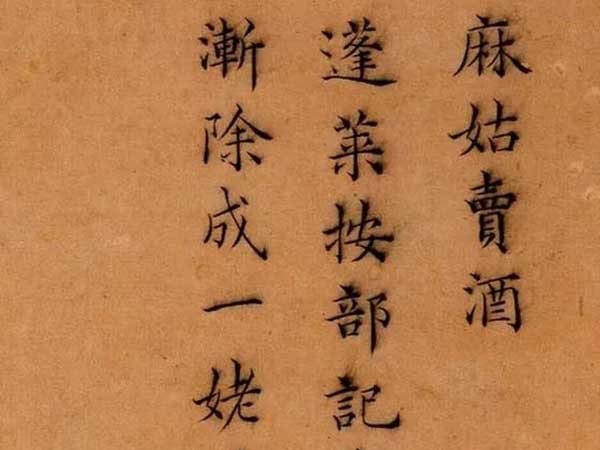 麻姑賣酒
蓬萊按部記
漸除成一姥